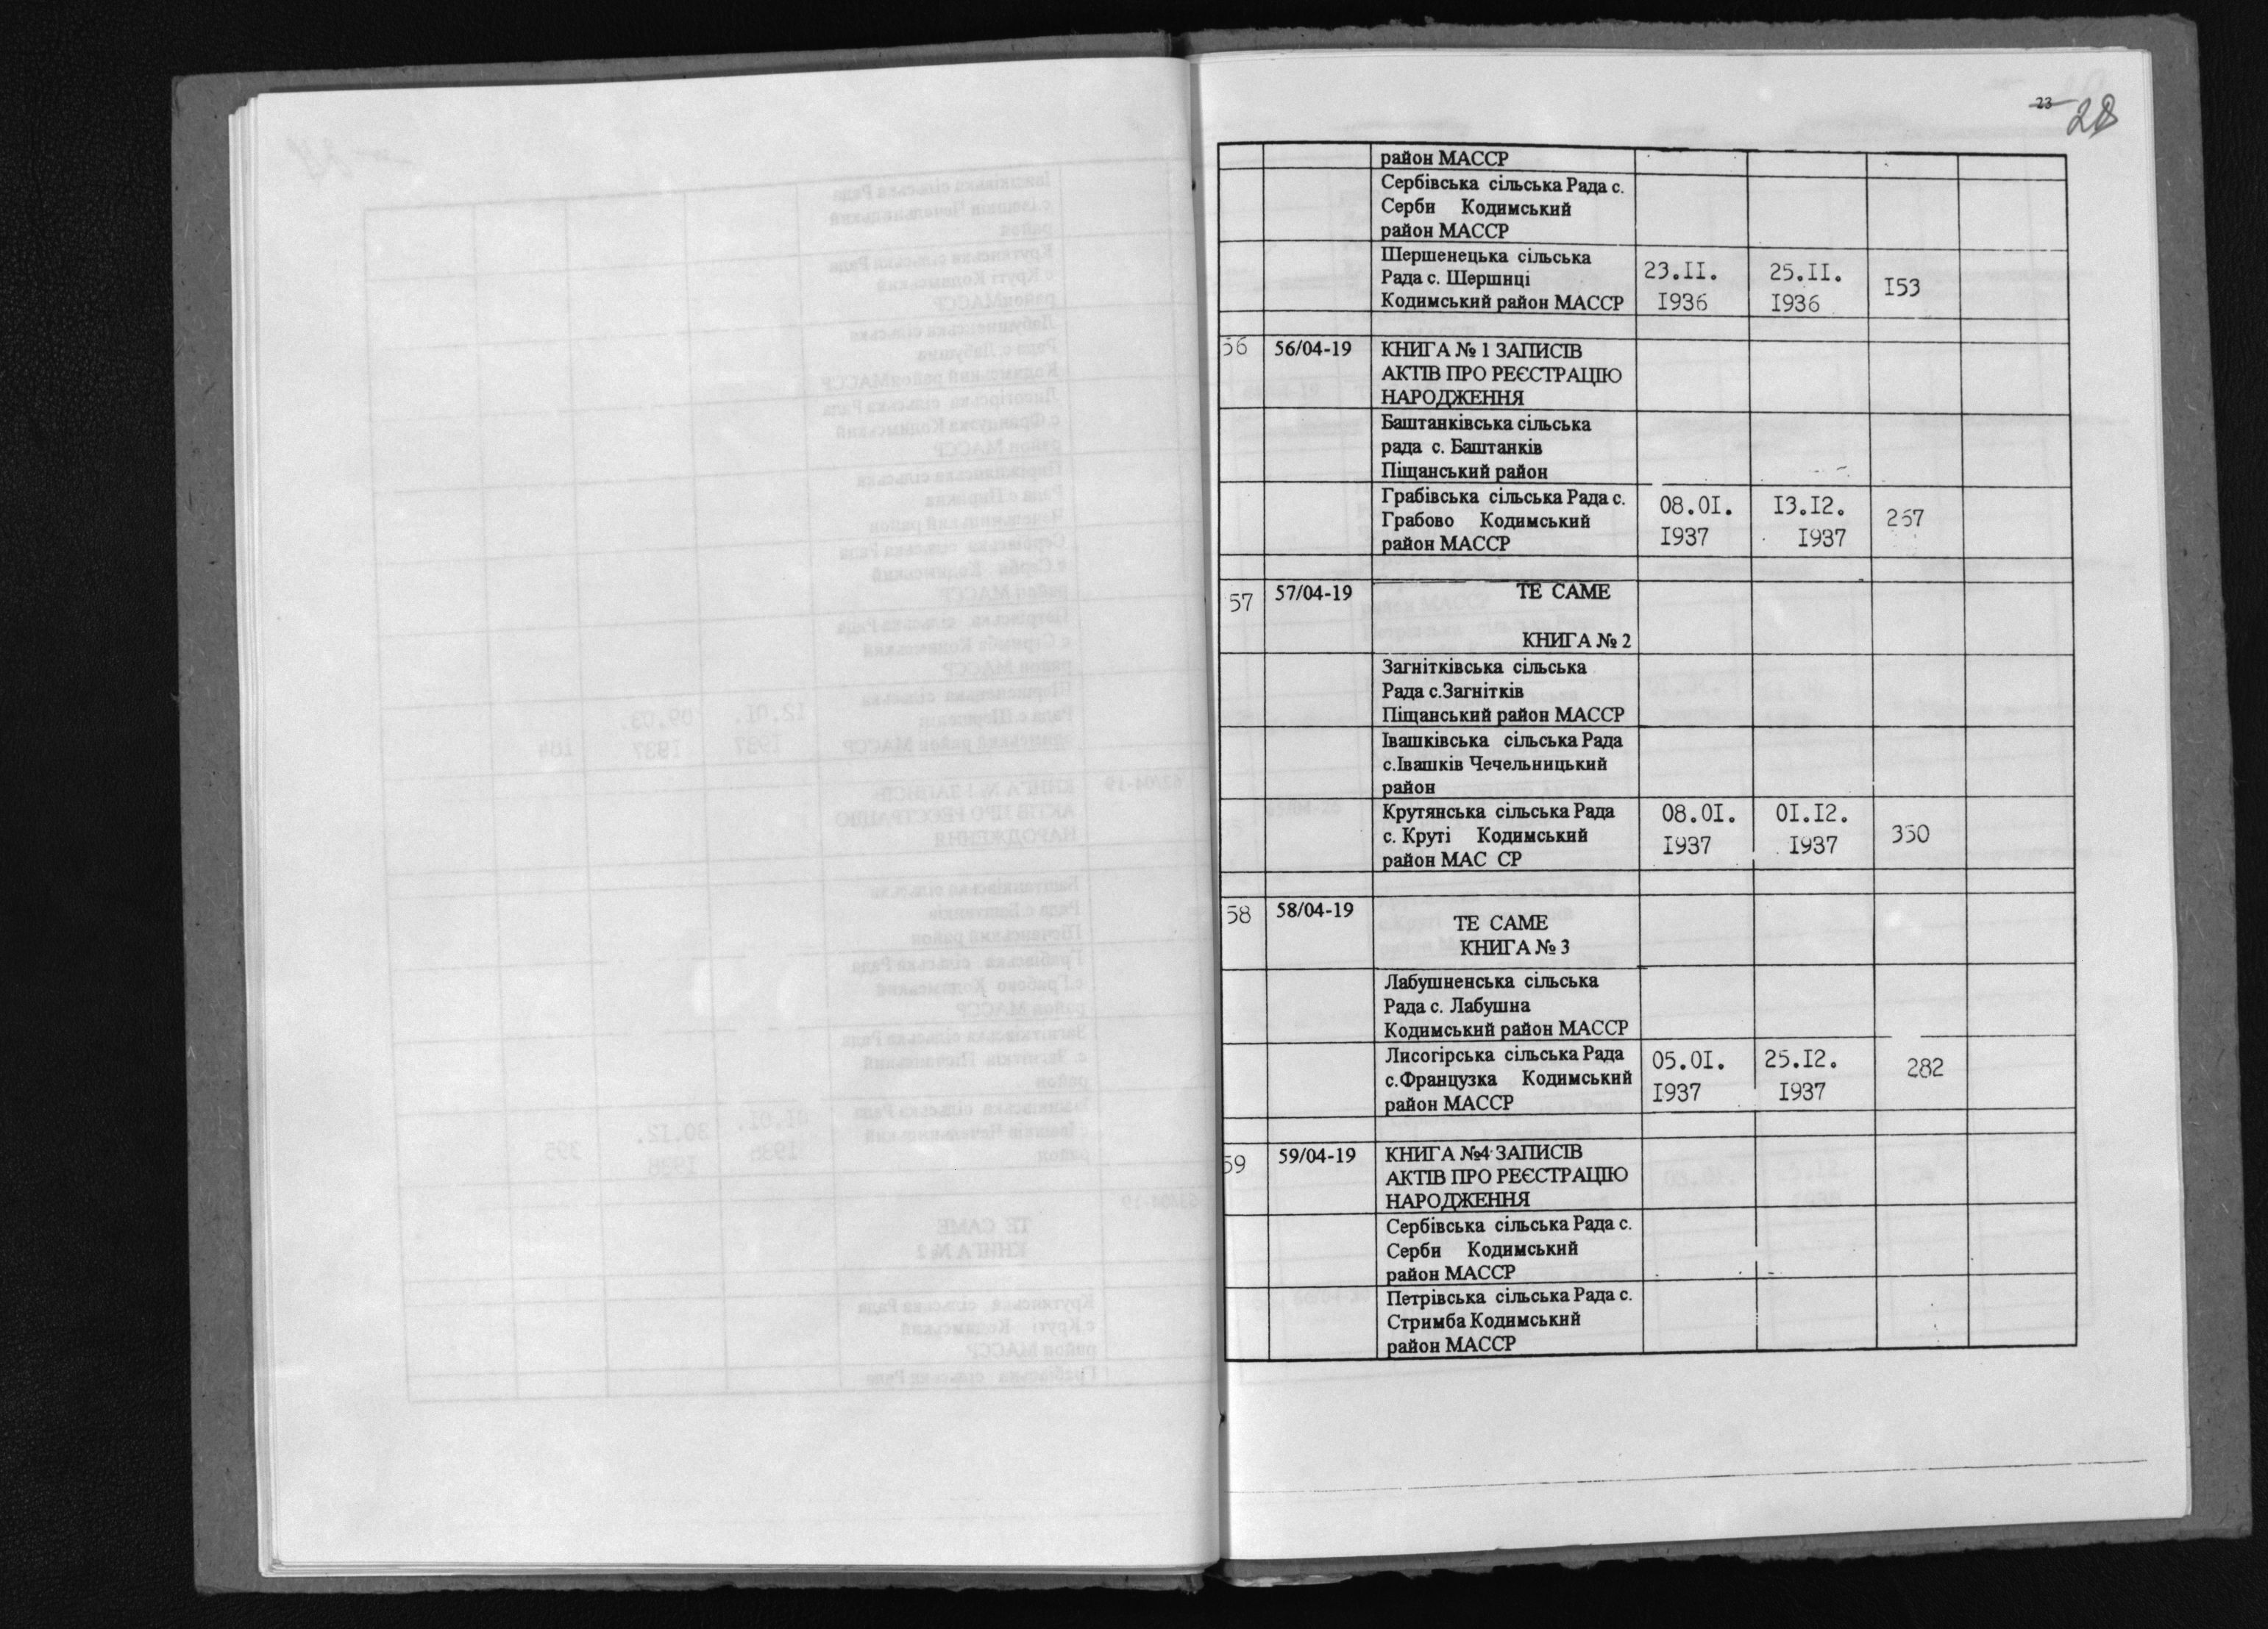 23
28
район МАССР
Сербівська сільська Рада с.
Серби Кодимський
район МАССР
Шершенецька сільська
Рада с. Шершнці
Кодимський район МАССР
23.II.
I936
25.II.
I936
I53
56
56/04-19
КНИГА № 1 ЗАПИСІВ
АКТІВ ПРО РЕЄСТРАЦІЮ
НАРОДЖЕННЯ
Баштанківська сільська
рада с. Баштанків
Піщанський район
Грабівська сільська Рада с.
Грабово Кодимський
район МАССР
08.0I.
I937
I3.I2.
I937
267
57
57/04-19
ТЕ САМЕ
КНИГА № 2
Загнітківська сільська
Рада с.Загнітків
Піщанський район МАССР
Івашківська сільська Рада
с.Івашків Чечельницький
район
Крутянська сільська Рада
с. Круті Кодимський
район МАС СР
08.0I.
I937
0I.I2.
I937
350
58
58/04-19
ТЕ САМЕ
КНИГА № 3
Лабушненська сільська
Рада с. Лабушна
Кодимський район МАССР
Лисогірська сільська Рада
с.Французка Кодимський
район МАССР
05.0I.
I937
25.I2.
I937
282
59
59/04-19
КНИГА №4 ЗАПИСІВ
АКТІВ ПРО РЕЄСТРАЦІЮ
НАРОДЖЕННЯ
Сербівська сільська Рада с.
Серби Кодимський
район МАССР
Петрівська сільська Рада с.
Стримба Кодимський
район МАССР